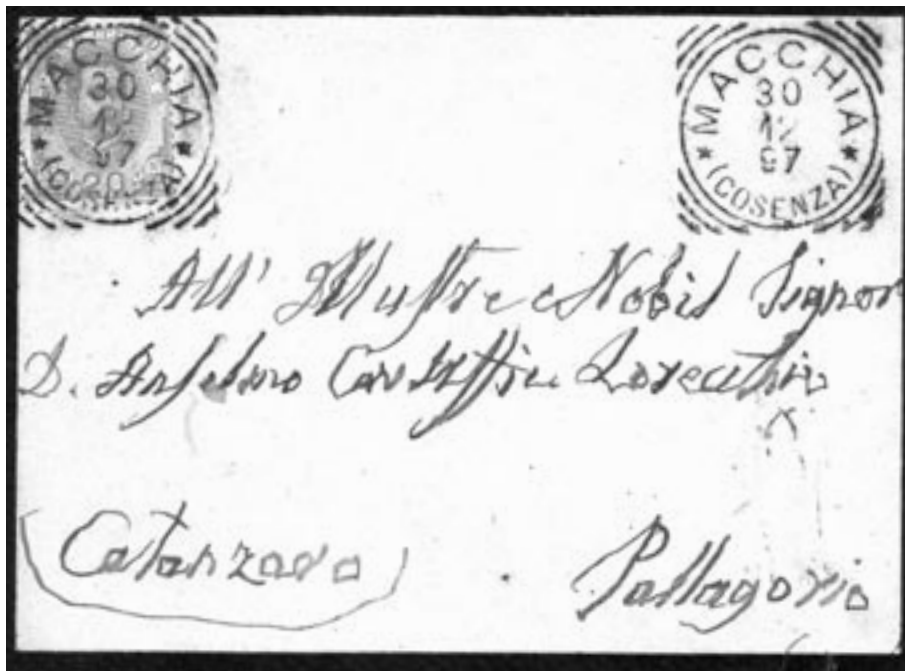 MACCHIA
30
12
97
20
(COSENZA)
MACCHIA
30
12
97
(COSENZA)
All' Illustre e Nobil Signor
D. Anselmo Cav Lorecchio
Catanzaro
Pallagorio